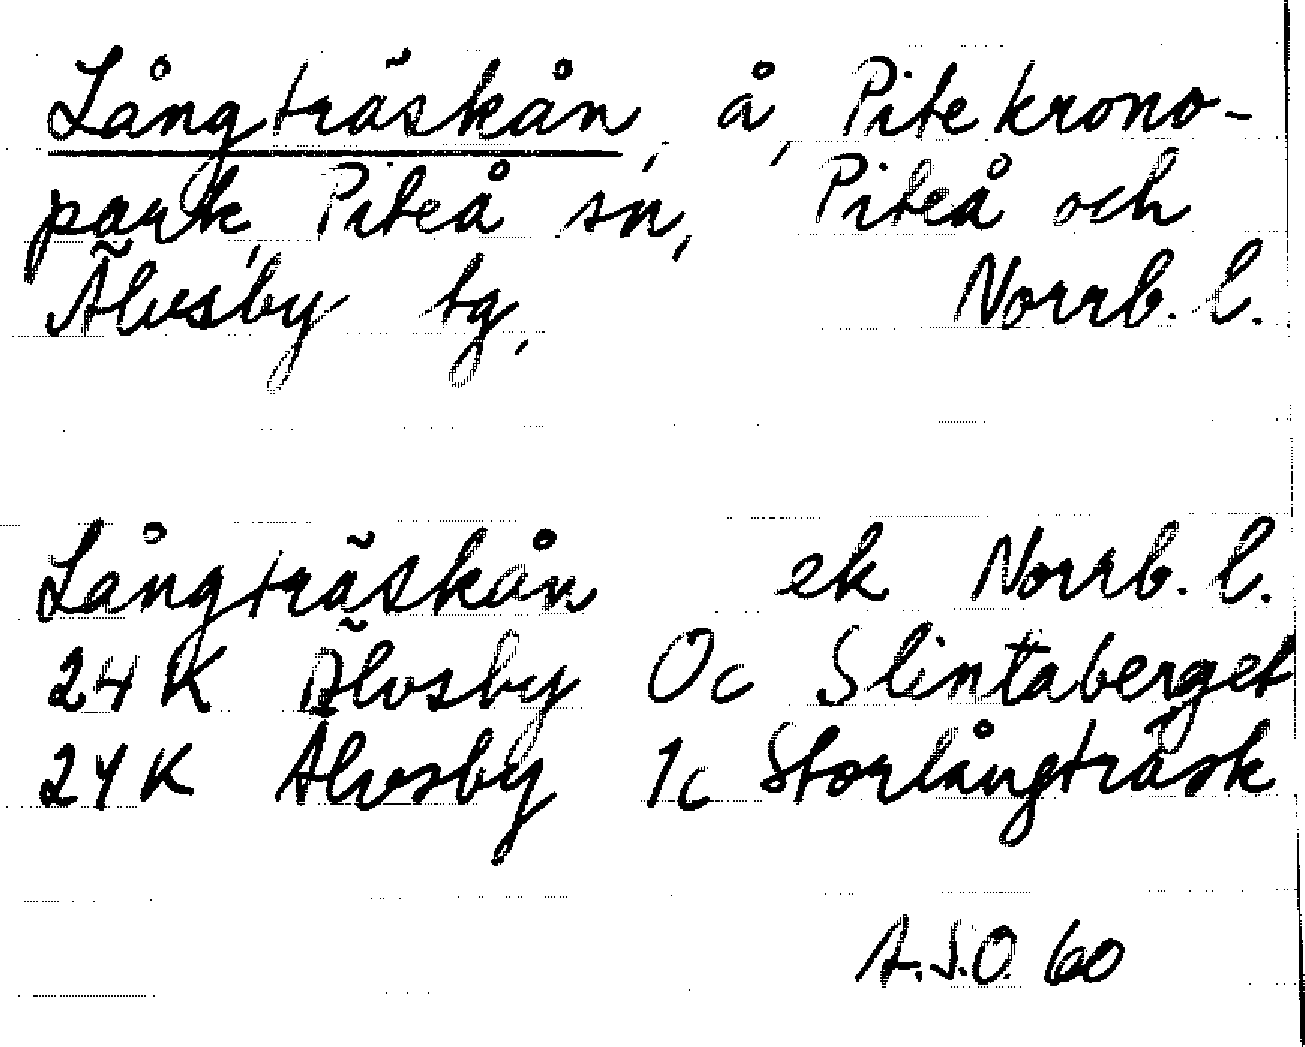 Långträskån, å, Pite krono-
park, Piteå sn, Piteå och
Älvsby tg, Norrb. l.
Långträskån ek Norrb. l.
24 K Älvsby 0c Slintaberget
24 K Älvsby 1c Storlångträsk
A.S.O. 60